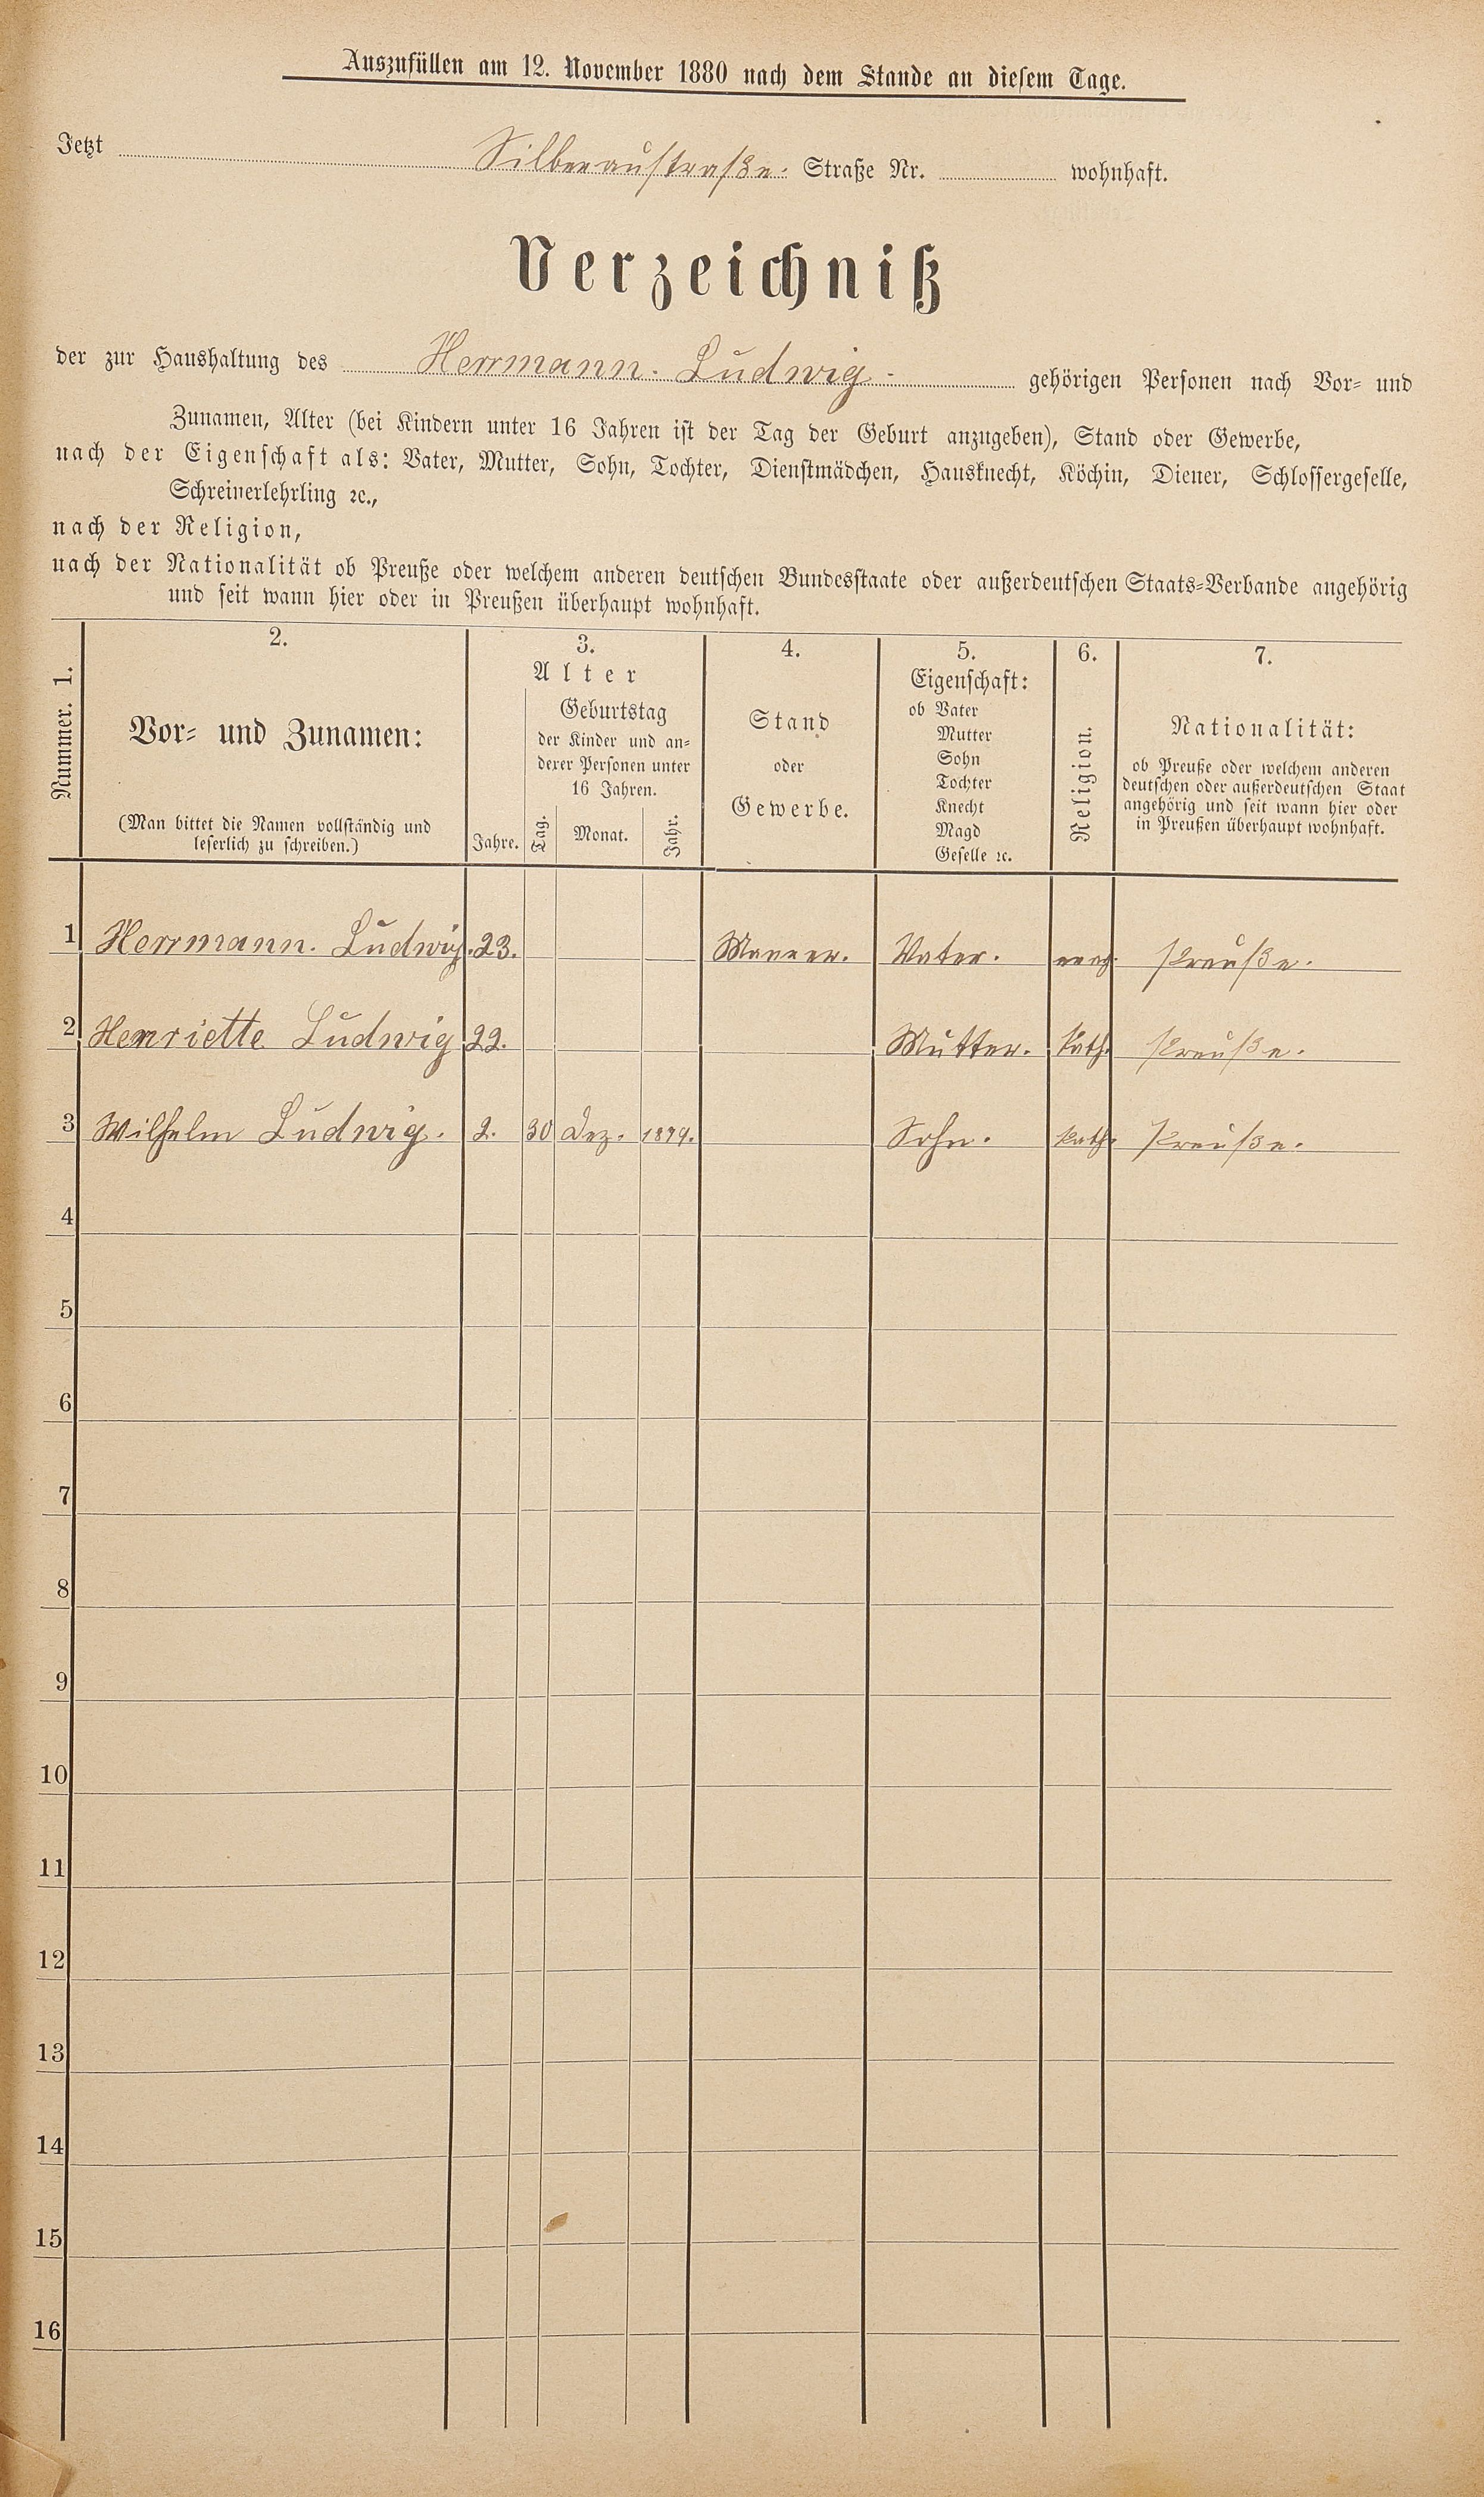 Auszufüllen am 12. November 1880 nach dem Stande an diesem Tage.
Jetzt Silberaustraße. Straße Nr. wohnhaft.
Verzeichniß
der zur Haushaltung des Herrmann. Ludwig. gehörigen Personen nach Vor= und
Zunamen, Alter (bei Kindern unter 16 Jahren ist der Tag der Geburt anzugeben), Stand oder Gewerbe,
nach der Eigenschaft als: Vater, Mutter, Sohn, Tochter, Dienstmädchen, Hausknecht, Köchin, Diener, Schlossergeselle,
Schreinerlehrling ꝛc.,
nach der Religion,
nach der Nationalität ob Preuße oder welchem anderen deutschen Bundesstaate oder außerdeutschen Staats=Verbande angehörig
und seit wann hier oder in Preußen überhaupt wohnhaft.
Nummer. 1.
2.
Vor= und Zunamen:
(Man bittet die Namen vollständig und
leserlich zu schreiben.)
3.
Alter
Geburtstag
der Kinder und an=
derer Personen unter
16 Jahren.
Jahre. Tag. Monat. Jahr.
4.
Stand
oder
Gewerbe.
5.
Eigenschaft:
ob Vater
Mutter
Sohn
Tochter
Knecht
Magd
Geselle ꝛc.
6.
Religion.
7.
Nationalität:
ob Preuße oder welchem anderen
deutschen oder außerdeutschen Staat
angehörig und seit wann hier oder
in Preußen überhaupt wohnhaft.
1 Herrmann. Ludwig. 23. Maurer. Vater. evag. Preuße.
2 Henriette Ludwig 22. Mutter. Kath. Preuße.
3 Wilhelm Ludwig. 2. 30 Dez. 1879. Sohn. Kath. Preuße.
4
5
6
7
8
9
10
11
12
13
14
15
16